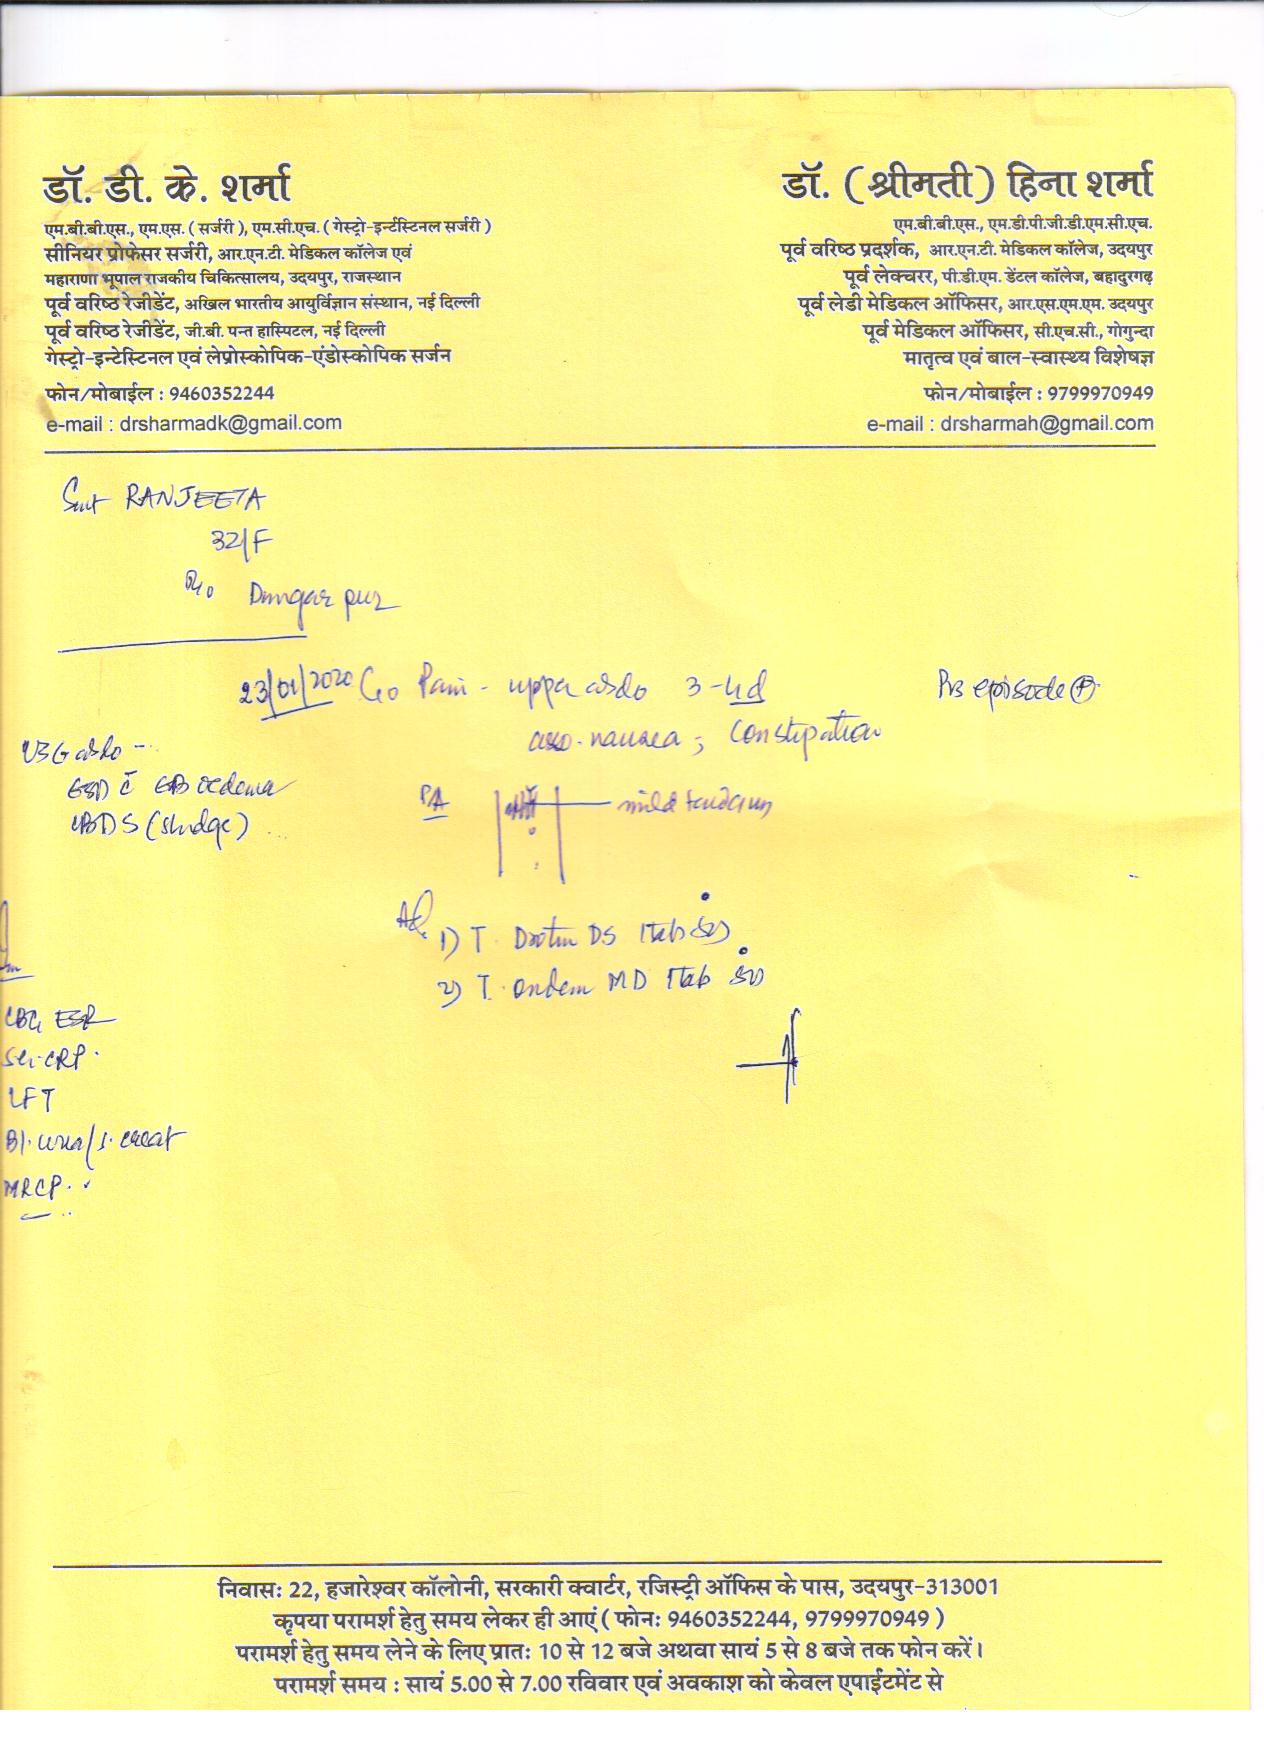 डॉ. डी. के. शर्मा
एम.बी.बी.एस., एम.एस. ( सर्जरी ), एम.सी.एच. ( गेस्ट्रो-इर्न्टस्टिनल सर्जरी )
सीनियर प्रोफेसर सर्जरी, आर.एन.टी. मेडिकल कॉलेज एवं
महाराणा भूपाल राजकीय चिकित्सालय, उदयपुर, राजस्थान
पूर्व वरिष्ठ रेजीडेंट, अखिल भारतीय आयुर्विज्ञान संस्थान, नई दिल्ली
पूर्व वरिष्ठ रेजीडेंट, जी.बी. पन्त हास्पिटल, नई दिल्ली
गेस्ट्रो-इन्टेस्टिनल एवं लेप्रोस्कोपिक-एंडोस्कोपिक सर्जन
फोन/मोबाईल : 9460352244
e-mail : drsharmadk@gmail.com
डॉ. ( श्रीमती ) हिना शर्मा
एम.बी.बी.एस., एम.डी.पी.जी.डी.एम.सी.एच.
पूर्व वरिष्ठ प्रदर्शक, आर.एन.टी. मेडिकल कॉलेज, उदयपुर
पूर्व लेक्चरर, पी.डी.एम. डेंटल कॉलेज, बहादुरगढ़
पूर्व लेडी मेडिकल ऑफिसर, आर.एस.एम.एम. उदयपुर
पूर्व मेडिकल ऑफिसर, सी.एच.सी., गोगुन्दा
मातृत्व एवं बाल-स्वास्थ्य विशेषज्ञ
फोन/मोबाईल : 9799970949
e-mail : drsharmah@gmail.com
Smt RANJEETA
32/F
R/o Dungarpur
23/01/2020 C/o Pain - upper abdo 3-4d
episode (+)
asso. nausea ; constipation
USG abdo -
GSD c̄ GB oedema
CBDS (sludge)
PA
mild
Adv
1) T. DS 1tab
2) T. ondem MD 1tab
CBC, ESR
Se. CRP.
LFT
Bl. urea/s. creat
MRCP.
निवासः 22, हजारेश्वर कॉलोनी, सरकारी क्वार्टर, रजिस्ट्री ऑफिस के पास, उदयपुर-313001
कृपया परामर्श हेतु समय लेकर ही आएं ( फोनः 9460352244, 9799970949 )
परामर्श हेतु समय लेने के लिए प्रातः 10 से 12 बजे अथवा सायं 5 से 8 बजे तक फोन करें।
परामर्श समय : सायं 5.00 से 7.00 रविवार एवं अवकाश को केवल एपाईंटमेंट से